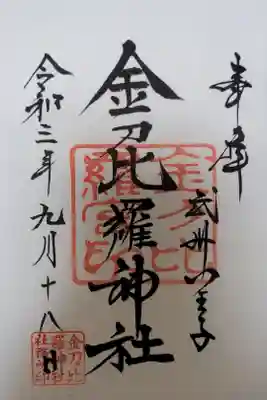 奉拝
武州八王子
金刀比羅神社
金刀比
羅宮印
令和三年九月十八日
金刀比
羅神社
社務所印